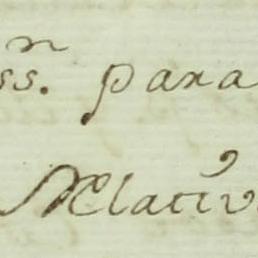 ss.ⁿ para
Relativ